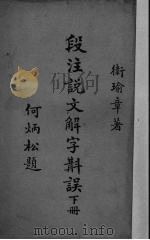 衛瑜章著
段注說文解字斠誤下冊
何炳松題